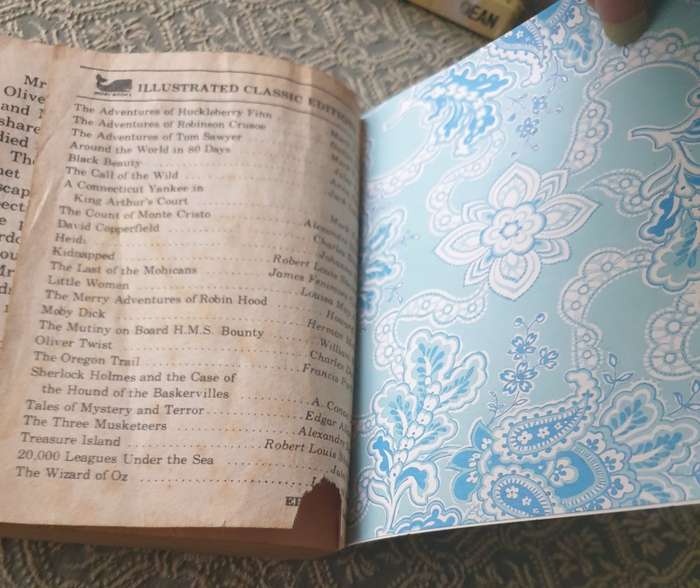 DEAN
Mr
Olive
and
share
died
Th
ILLUSTRATED CLASSIC EDITION
The Adventures of Huckleberry Finn
The Adventures of Robinson Crusoe
The Adventures of Tom Sawyer
Around the World in 80 Days
Black Beauty
The Call of the Wild
A Connecticut Yankee in
King Arthur's Court
The Count of Monte Cristo Alexandre
David Copperfield Charles
Heidi
Kidnapped Robert Louis
The Last of the Mohicans James Fenimore
Little Women Louisa May
The Merry Adventures of Robin Hood
Moby Dick Herman
The Mutiny on Board H.M.S. Bounty William
Oliver Twist Charles
The Oregon Trail Francis
Sherlock Holmes and the Case of
the Hound of the Baskervilles A. Conan
Tales of Mystery and Terror Edgar
The Three Musketeers Alexandre
Treasure Island Robert Louis
20,000 Leagues Under the Sea
The Wizard of Oz